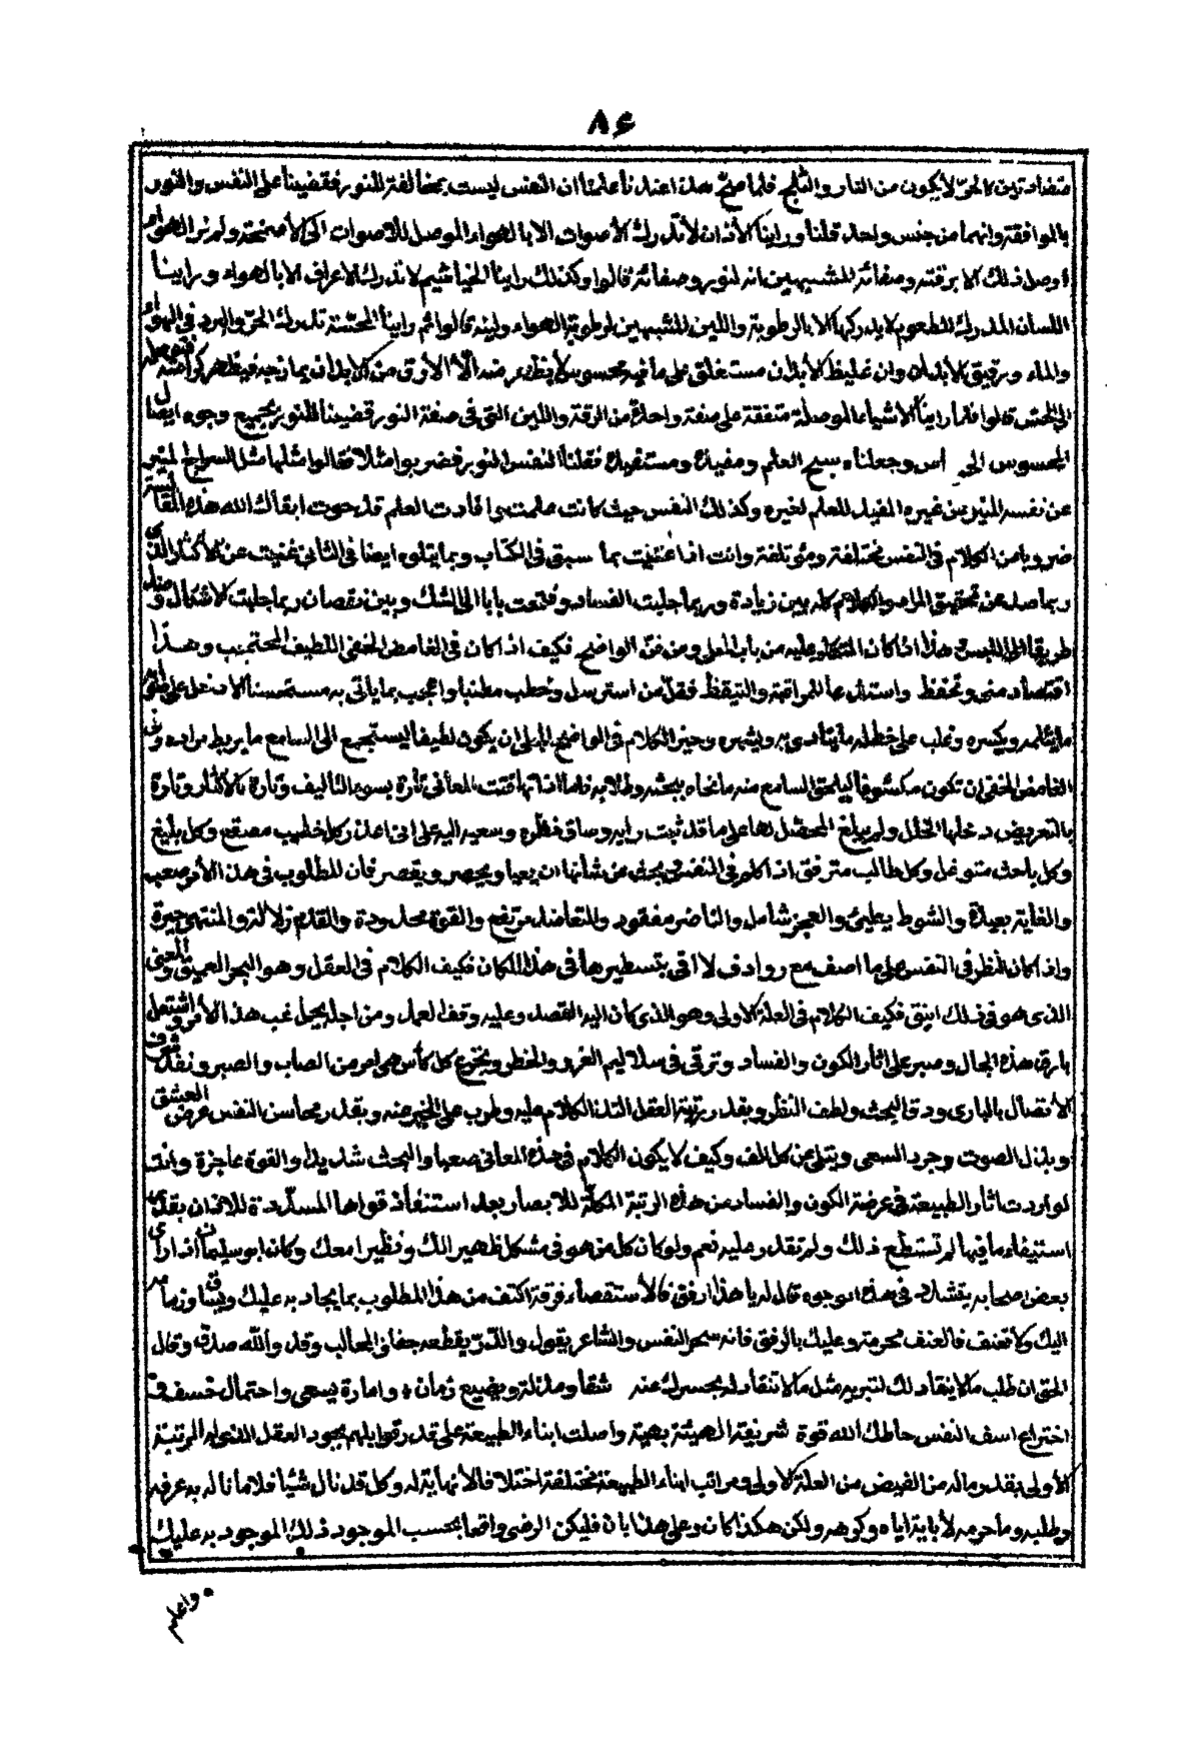 ٨٤
متضادتين كالحر لا يكون من النار والثلج فلما صح هذا عندنا علمنا ان النفس ليست بمخالفة للنور فقضينا على النفس والنور
بالموافقة وانهما من جنس واحد قلنا وراينا الأذان لا تدرك الأصوات الا بالهواء الموصل للاصوات الى الأصمخة ولم نر الهواء
اوصل ذلك الا برقته وصفائه للمشبهين انه لنور وصفائه قالوا وكذلك راينا الخياشيم لا تدرك الاعراف الا بالهواء وراينا
اللسان المدرك للطعوم لا يدركها الا بالرطوبة واللين المشبهين لرطوبة الهواء ولينه قالوا ثم راينا المجسة تدرك الحر والبرد في الهواء
والماء وترقيق الابدان وان غليظ الأبدان مستغلق على ما فيه محسوس لا يظهر منه الا الأرق من كل بدان يمازجه فيظهر
الى الحس قالوا فلما راينا الاشياء الموصلة متفقة على صفة واحدة من الرقة واللين التي في صفة النور قضينا للنور بجميع وجوه ايصال
المحسوس الى الحواس وجعلناه سبح العلم ومفيدة ومستفيدة فقلنا النفس النور فضربوا مثلا فقالوا مثلها مثل السراج المنير
عن نفسه المنير من غيره المفيد للعلم لغيره وكذلك النفس حيث كانت علمت وافادت العلم قد حوت ابقاك الله هذه المقابسة
ضروبا من الكلام في النفس مختلفة ومؤتلفة وانت اذا عنيت بما سبق في الكتاب وبما يتلوه ايضا في الثاني غنيت عن الأكثار الذي
ربما صد عن تحقيق المراد والكلام كله بين زيادة وربما جلبت الفساد وفتحت بابا الى الشك وبين نقصان ربما جلبت الاشكال و
طريقا الى اللبس هذا اذا كان المتكلم عليه من باب العلم ومن فن الواضح فكيف اذا كان في الغامض الخفي اللطيف المحتجب وهذا
اقتصاد مني وتحفظ واستدعا للمراقبة والتيقظ فقل من استرسل وخطب مطنبا واعجب بما ياتي به مستحسنا الا دخل على
ما يثلمه ويكسره وغلب على خطله ما يتادى به ويشهره وخير الكلام في الواضح الجلي ان يكون لطيفا ليستجمع الى السامع ما يربط مراده وفي
الغامض الخفي ان تكون مكشوفا ليلحق السامع منه ما نحاه ببحثه وطلابه فاما اذا تهافتت المعاني تارة بسوء التاليف وتارة بالاكثار وتارة
بالتعريض دخلها الخلل ولم يبلغ المحصل لها على ما قد ثبت رايه وصاق نظره وسعيه اليه على اني اعذر كل خطيب مصقع وكل بليغ
وكل باحث متوغل وكل طالب مترفق اذ اكلم في النفس يبحث من شانها ان يعيا ويحصر ويقصر فان المطلوب في هذا الأمر صعب
والغاية بعيدة والشوط بطيئ والعجز شامل والناصر مفقود والمتعاضد مرتفع والقوة محدودة والقدم زلالة والمنتهى حيرة
واذا كان النظر في النفس على ما اصف مع روادف لا افي بتسطيرها في هذا المكان فكيف الكلام في العقل وهو البحر العميق والمعنى
الذي هو في ذلك انيق فكيف الكلام في العلة الاولى وهو الذي كان اليه القصد وعليه وقف العمل ومن اجله يحمل غب هذا الأمر واشتمل
بارق هذه الحال وصبر على اثار الكون والفساد وترقى في سلاليم الغرر والخطر وتجرع كل كأس هي امر من الصاب والصبر ونفذ في
الأتصال بالبارى ودق البحث ولطف النظر وبقدر رتبة العقل التذ الكلام عليه وطرب على الخبر عنه وبقدر محاسن النفس عرض العشق
وبذل الصوت وجرد السعي وبتلي عن كل الف وكيف لا يكون الكلام في هذه المعاني صعبا والبحث شديدا والقوة عاجزة وانت
لو اردت اثار الطبيعة في عرضة الكون والفساد من هذه الرتبة المكلة للابصار بعد استنفاذ قواها المسددة للاذهان بقدر
استيفاء ما فيها لم تستطع ذلك ولم تقدر عليه نعم ولو كان كل من هو في مشكل ظهيرا لك ونظيرا معك وكان ابو سليمان اذا راى
بعض اصحابه يتشدد في هذه الوجوه قال له يا هذا ارفق فالأستقصاء فرقة اكتف من هذا المطلوب بما يجاد به عليك ويساق
اليك ولا تعنف فالعنف محرمة وعليك بالرفق فانه سحر النفس والشاعر يقول والدر يقطعه جفاء الحالب وقد والله صدق وقال
الحق ان طلب ما لا ينقاد لك لتبريه مثل ما لا تنقاد له بحسرك عنه شقا ومذلة وبضيع زمان وامارة يسعى واحتمال خسف في
اختراع اسف النفس حاطك الله قوة شريفة الهيئة بهية واصلت ابناء الطبيعة على قدر قوابلهم بجود العقل الذي له المرتبة
الأولى بقدر ماله من الفيض من العلة الاولى ومراتب ابناء الطبيعة مختلفة اختلافا لا نهاية له وكل قد نال شيئا فلا ما ناله به عرفه
وطلبه وما حرمه لا باية اياه وكرهه ولكن هكذا كان وعلى هذا بان فليكن الرضى واقعا بحسب الموجود ذلك الموجود به عليك
واعلم